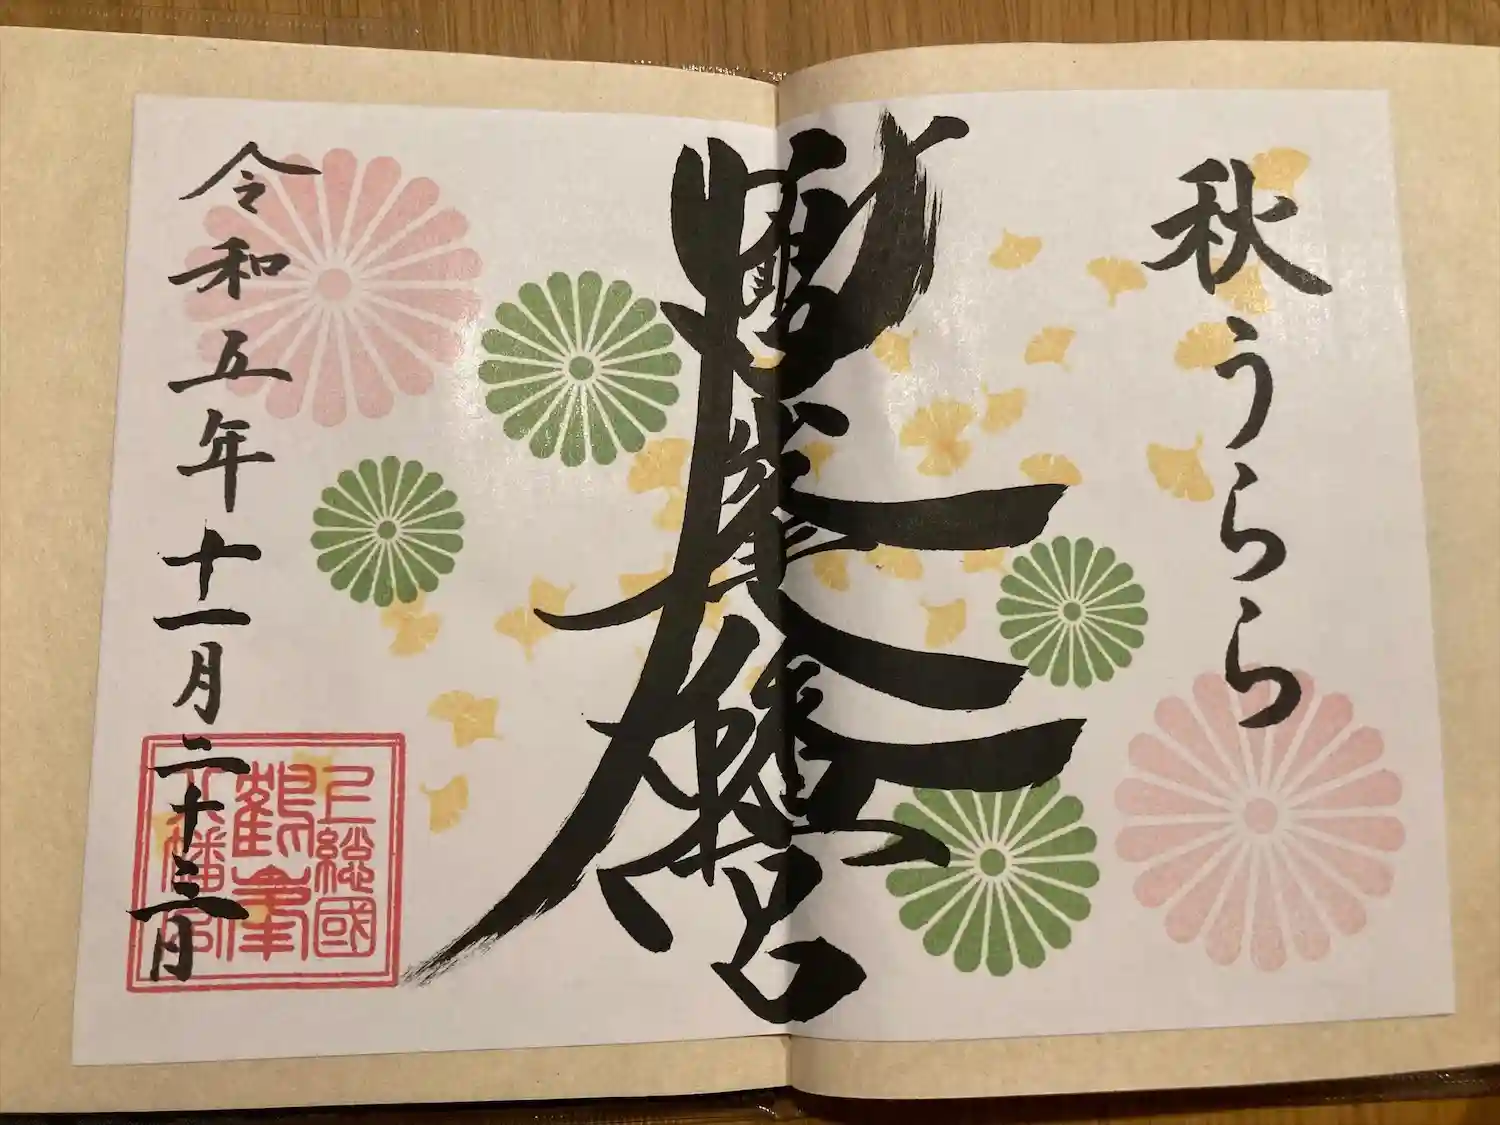 秋うらら
鶴峯八幡宮
令和五年十一月二十三日
上總國
鶴峯
八幡宮